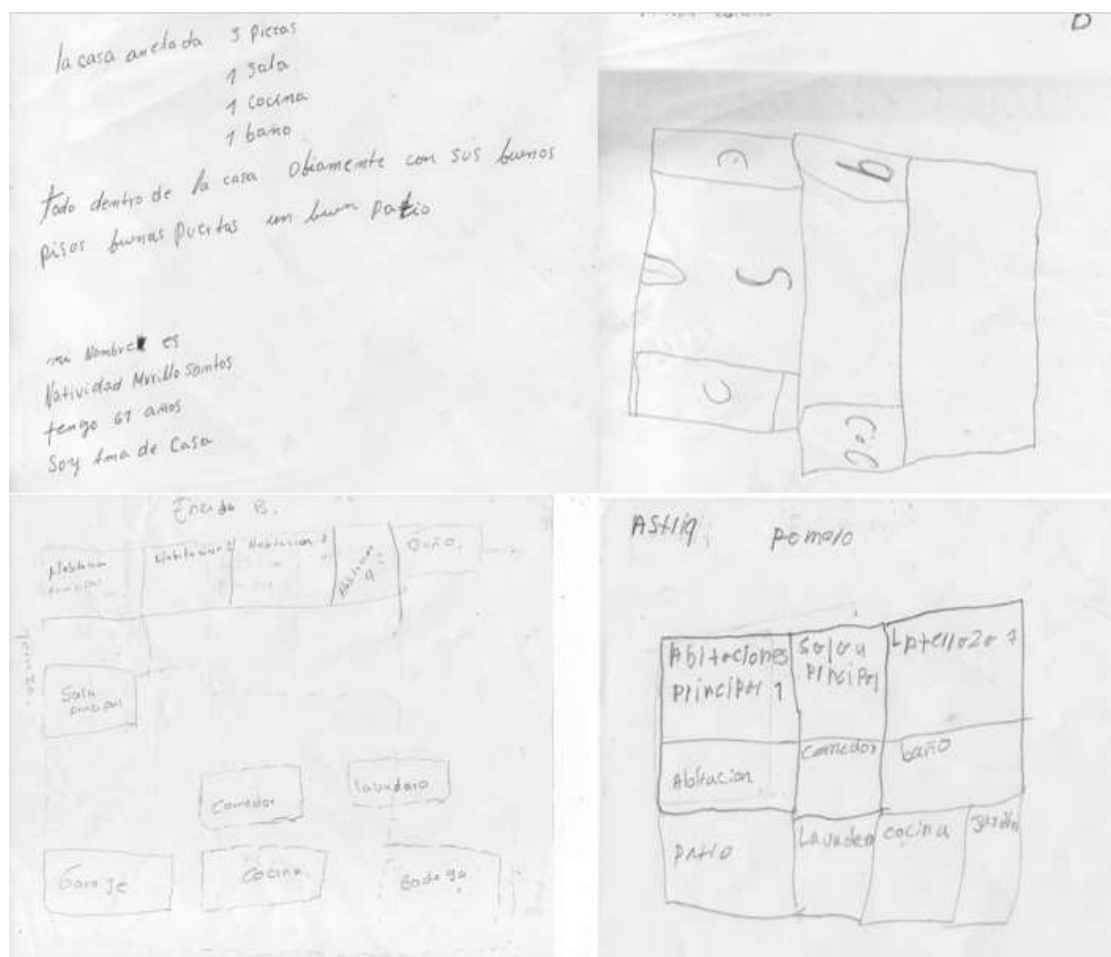 la casa anelada 3 piezas
1 Sala
1 cocina
1 baño
todo dentro de la casa Obiamente con sus buenos
pisos buenas puertas un buen patio
mi Nombre es
Natividad Murillo Santos
tengo 61 años
Soy Ama de Casa
D
C
b
S
C
Co.C
B.
Habitacion
principal
Habitacion
Habitacion
Habitacion
Baño.
Terraza.
Sala
principal
Comedor
lavadero
Garaje
Cocina
Bodega
Astrig
Pomalo
Abitaciones
principar 1
Solou
principal
Abitacion
comedor
baño
patio
Lavaden
cocina
Jardin